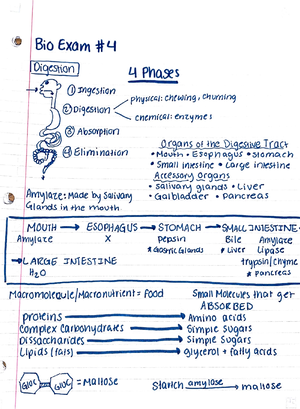 Bio Exam #4
Digestion
4 Phases
① Ingestion
② Digestion
physical: chewing, churning
chemical: enzymes
③ Absorption
④ Elimination
Organs of the Digestive Tract
• Mouth • Esophagus • Stomach
• Small intestine • Large intestine
Accessory Organs
• Salivary glands • Liver
• Gallbladder • Pancreas
Amylaze: Made by Salivary
Glands in the mouth.
MOUTH → ESOPHAGUS → STOMACH → SMALL INTESTINE
Amylaze X Pepsin Bile Amylaze
* Gastric Glands * Liver Lipase
trypsin/chyme
* Pancreas
→ LARGE INTESTINE
H₂O
Macromolecule/Macronutrient = Food
Small Molecules that get
ABSORBED
proteins → Amino acids
Complex Carbohydrates → Simple Sugars
Dissaccharides → Simple Sugars
Lipids (fats) → glycerol + fatty acids
Gluc Gluc = Maltose
Starch amylose → maltose